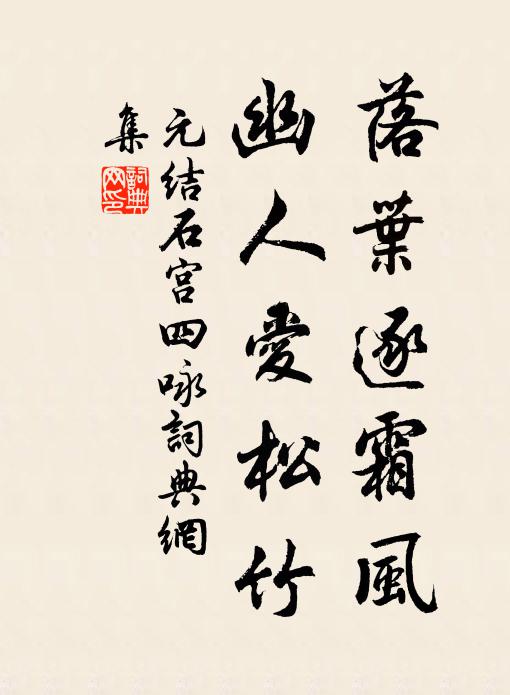 落葉逐霜風
幽人愛松竹
元结石宫四咏詞典網
集
詞典网印